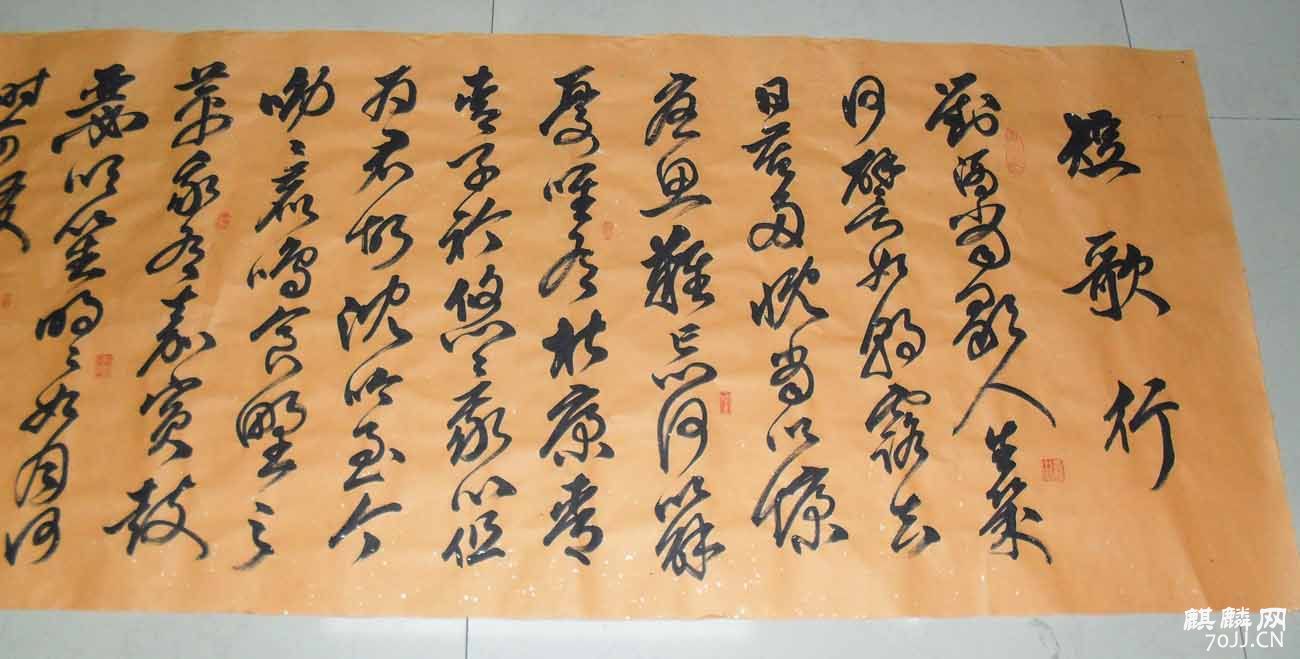 短歌行
對酒當歌人生幾
何譬如朝露去
日苦多慨當以慷
憂思難忘何以解
憂唯有杜康青
青子衿悠〻我心但
为君故沈吟至今
呦〻鹿鳴食野之
苹我有嘉賓鼓
瑟吹笙明〻如月何
时可掇
麒麟网
70JJ.CN